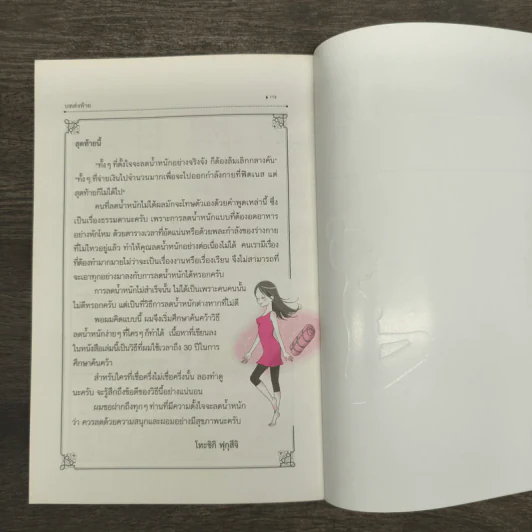 บทส่งท้าย
สุดท้ายนี้
"ทั้งๆ ที่ตั้งใจจะลดน้ำหนักอย่างจริงจัง ก็ต้องล้มเลิกกลางคัน"
"ทั้งๆ ที่จ่ายเงินไปจำนวนมากเพื่อจะไปออกกำลังกายที่ฟิตเนส แต่
สุดท้ายก็ไม่ได้ไป"
คนที่ลดน้ำหนักไม่ได้ผลมักจะโทษตัวเองด้วยคำพูดเหล่านี้ ซึ่ง
เป็นเรื่องธรรมดานะครับ เพราะการลดน้ำหนักแบบที่ต้องอดอาหาร
อย่างหักโหม ด้วยตารางเวลาที่อัดแน่นหรือด้วยพละกำลังของร่างกาย
ที่ไม่ไหวอยู่แล้ว ทำให้คุณลดน้ำหนักอย่างต่อเนื่องไม่ได้ คนเรามีเรื่อง
ที่ต้องทำมากมายไม่ว่าจะเป็นเรื่องงานหรือเรื่องเรียน จึงไม่สามารถที่
จะเอาทุกอย่างมาลงกับการลดน้ำหนักได้หรอกครับ
การลดน้ำหนักไม่สำเร็จนั้น ไม่ได้เป็นเพราะคนคนนั้น
ไม่ดีหรอกครับ แต่เป็นที่วิธีการลดน้ำหนักต่างหากที่ไม่ดี
พอผมคิดแบบนี้ ผมจึงเริ่มศึกษาค้นคว้าวิธี
ลดน้ำหนักง่ายๆ ที่ใครๆ ก็ทำได้ เนื้อหาที่เขียนลง
ในหนังสือเล่มนี้เป็นวิธีที่ผมใช้เวลาถึง 30 ปีในการ
ศึกษาค้นคว้า
สำหรับใครที่เชื่อครึ่งไม่เชื่อครึ่งนั้น ลองทำดู
นะครับ จะรู้สึกถึงข้อดีของวิธีนี้อย่างแน่นอน
ผมขอฝากถึงทุกๆ ท่านที่มีความตั้งใจจะลดน้ำหนัก
ว่า ควรลดด้วยความสนุกและผอมอย่างมีสุขภาพนะครับ
โทะชิกิ ฟุกุสึจิ